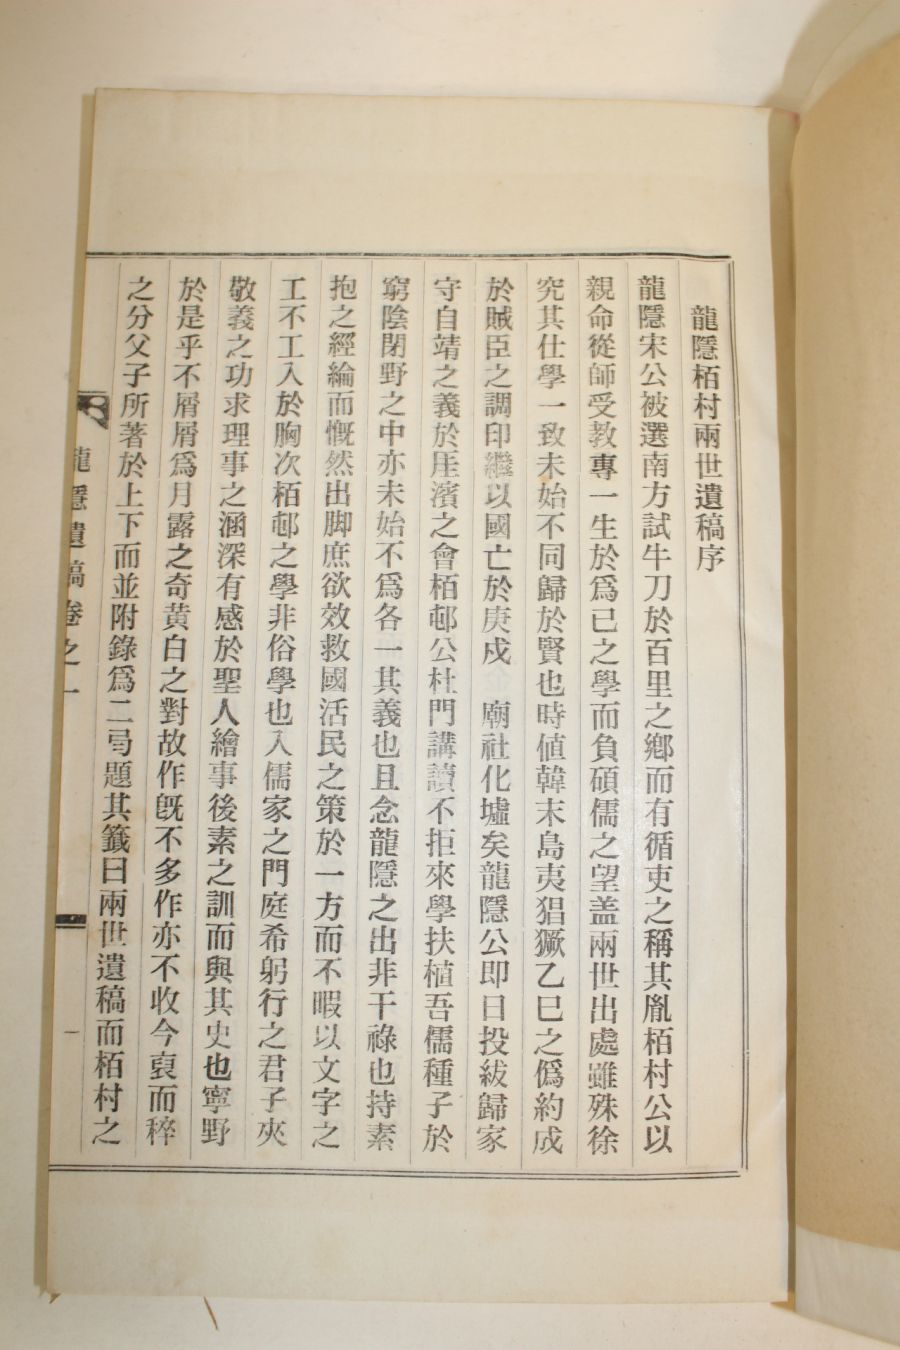 龍隱栢村兩世遺稿序
龍隱宋公被選南方試牛刀於百里之鄕而有循吏之稱其胤栢村公以
親命從師受敎專一生於爲已之學而負碩儒之望盖兩世出處雖殊徐
究其仕學一致未始不同歸於賢也時値韓末島夷猖獗乙巳之僞約成
於賊臣之調印繼以國亡於庚戍 廟社化墟矣龍隱公即日投紱歸家
守自靖之義於厓濱之會栢邨公杜門講讀不拒來學扶植吾儒種子於
窮陰閉野之中亦未始不爲各一其義也且念龍隱之出非干祿也持素
抱之經綸而慨然出脚庶欲效救國活民之策於一方而不暇以文字之
工不工入於胸次栢邨之學非俗學也入儒家之門庭希躬行之君子夾
敬義之功求理事之涵深有感於聖人繪事後素之訓而與其史也寧野
於是乎不屑屑爲月露之奇黄白之對故作旣不多作亦不收今裒而稡
之分父子所著於上下而並附錄爲二弓題其籤曰兩世遺稿而栢村之
龍隱遺稿卷之一
一